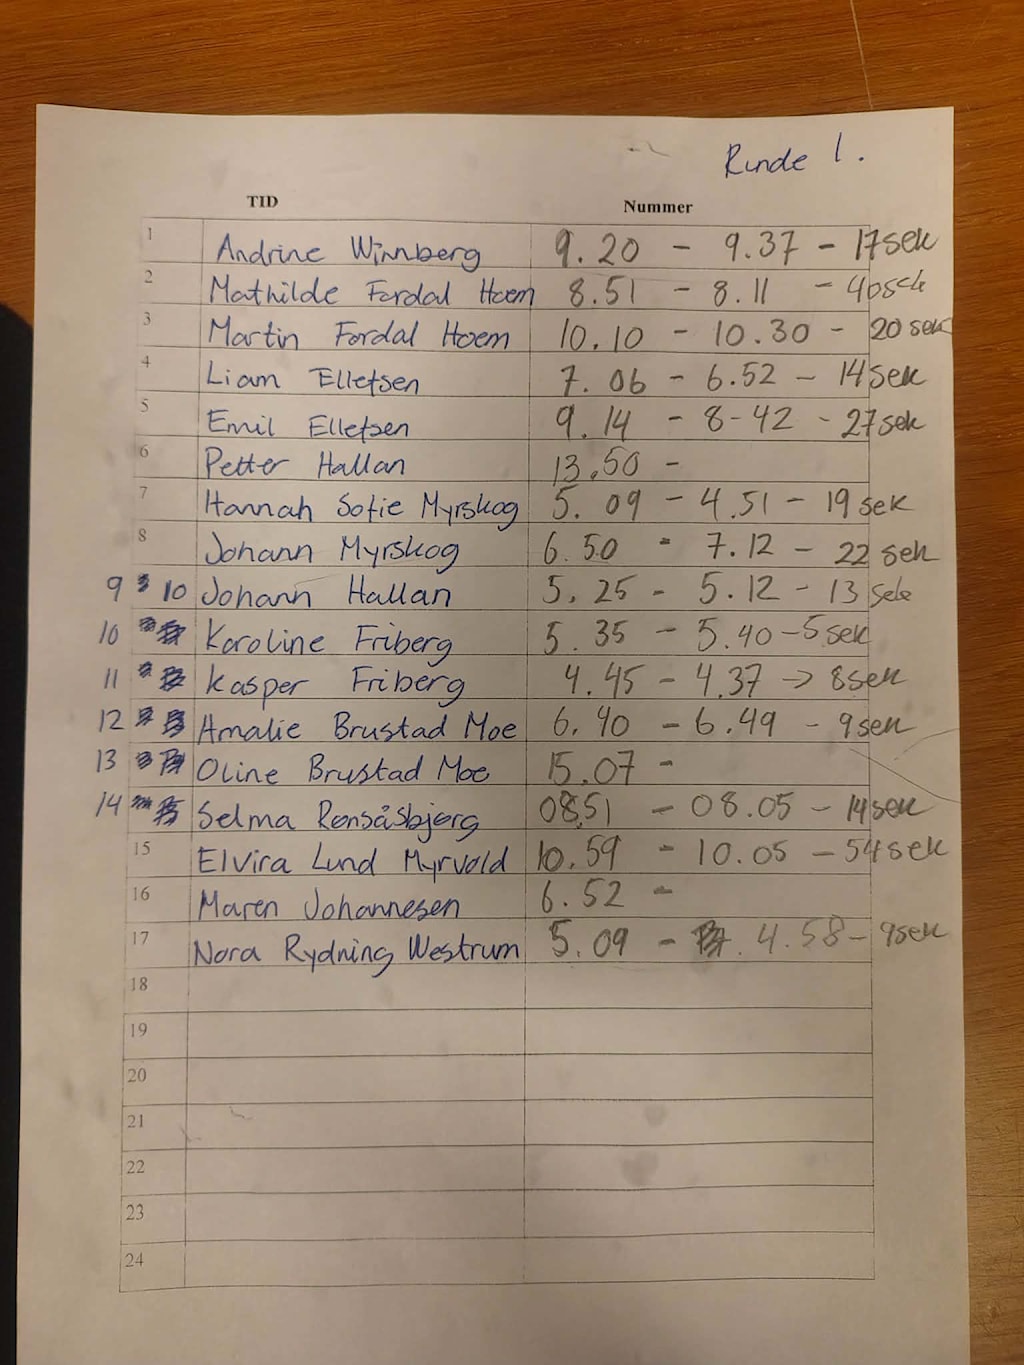 Runde 1.
TID Nummer
1 Andrine Winnberg 9.20 - 9.37 - 17sek
2 Mathilde Fordal Hoem 8.51 - 8.11 - 40sek
3 Martin Fordal Hoem 10.10 - 10.30 - 20 sek
4 Liam Ellefsen 7.06 - 6.52 - 14sek
5 Emil Ellefsen 9.14 - 8-42 - 27sek
6 Petter Hallan 13.50 -
7 Hannah Sofie Myrskog 5.09 - 4.51 - 19 sek
8 Johann Myrskog 6.50 - 7.12 - 22 sek
9 10 Johann Hallan 5.25 - 5.12 - 13 sek
10 Karoline Friberg 5.35 - 5.40 - 5sek
11 Kasper Friberg 4.45 - 4.37 -> 8sek
12 Amalie Brustad Moe 6.40 - 6.49 - 9sek
13 Oline Brustad Moe 15.07 -
14 Selma Rønsåsbjørg 08.51 - 08.05 - 14sek
15 Elvira Lund Myrvold 10.59 - 10.05 - 54sek
16 Maren Johannesen 6.52 -
17 Nora Rydning Westrum 5.09 - 4.58 - 9sek
18
19
20
21
22
23
24